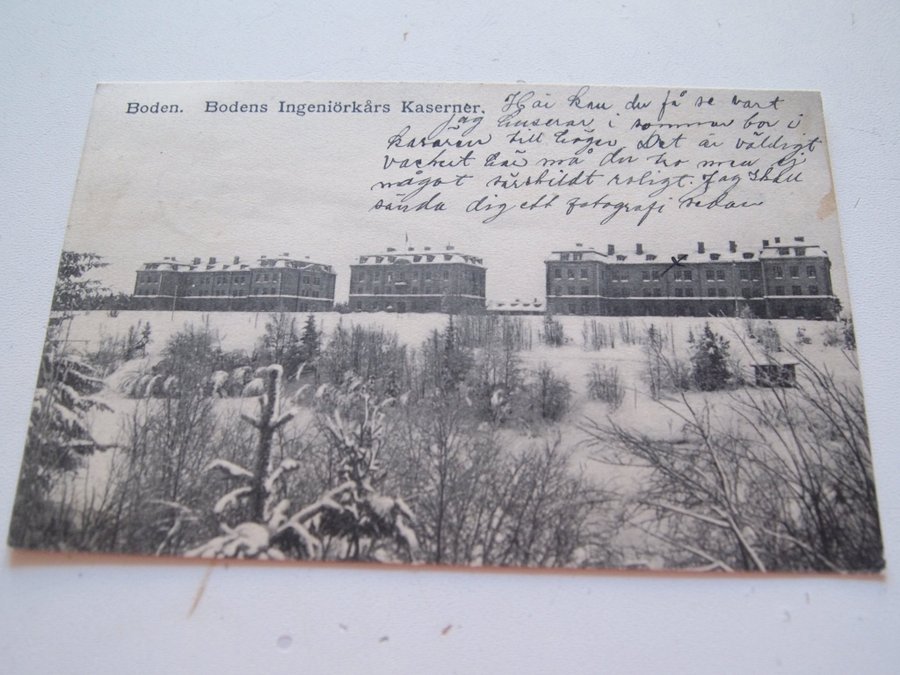 Boden. Bodens Ingeniörkårs Kaserner.
Här kan du få se vart
jag huserar i sommar bor i
kasären till höger Det är väldigt
vackert här må du tro men ej
något särskildt roligt. Jag skall
sända dig ett fotografi sedan